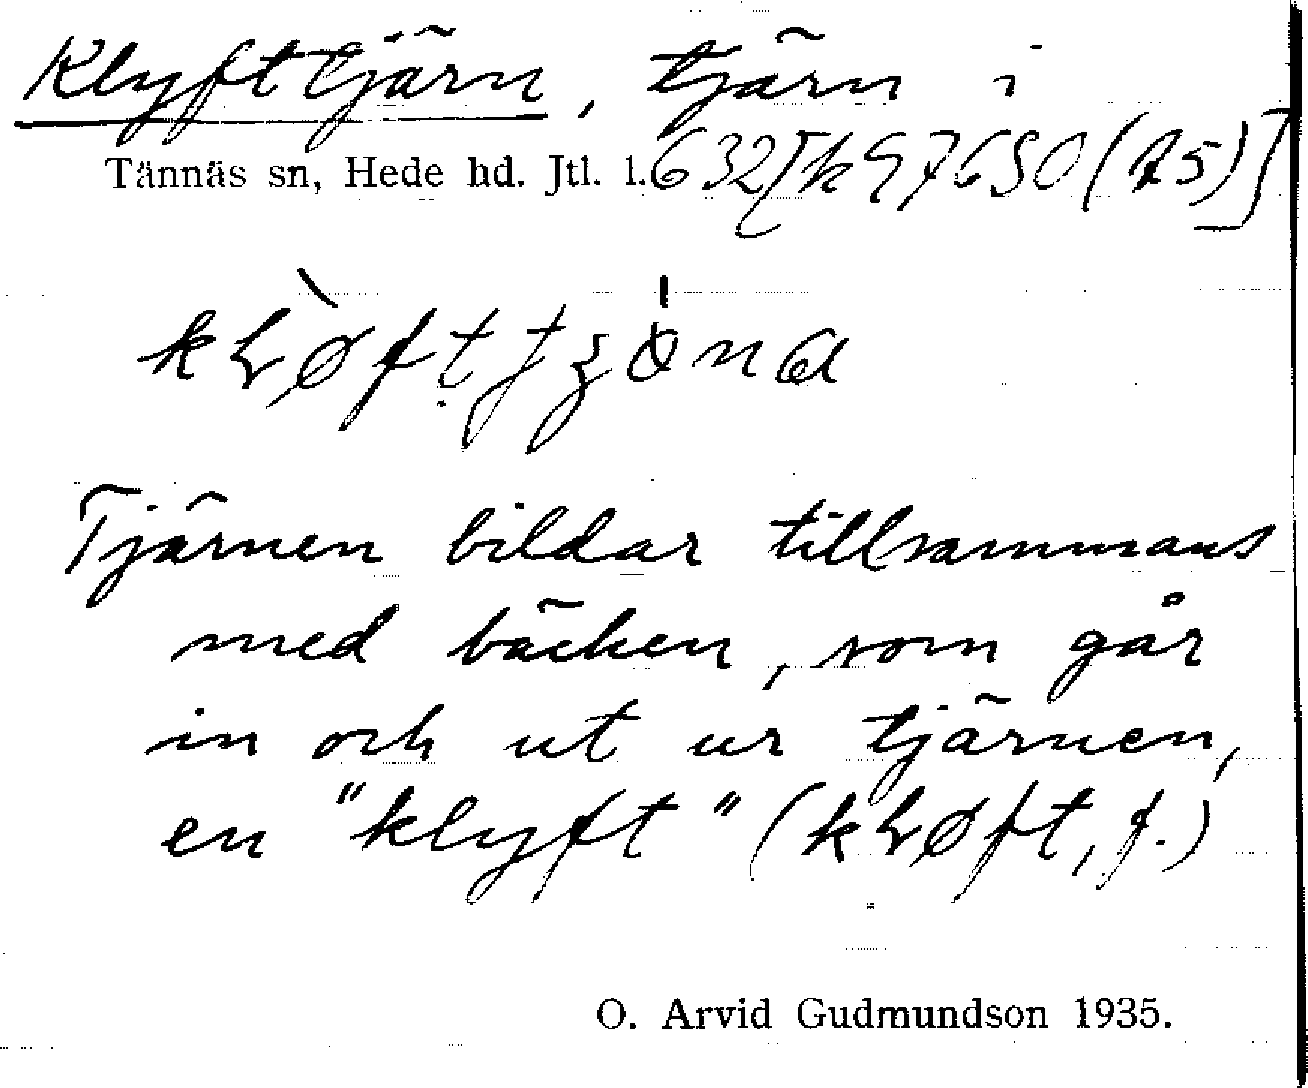 Klyfttjärn, tjärn i
Tännäs sn, Hede hd. Jtl. l. 632[k 97650 (A5)]
Tjärnen bildar tillsammans
med bäcken, som går
in och ut ur tjärnen,
en "klyft" (kLøft, f.)
O. Arvid Gudmundson 1935.